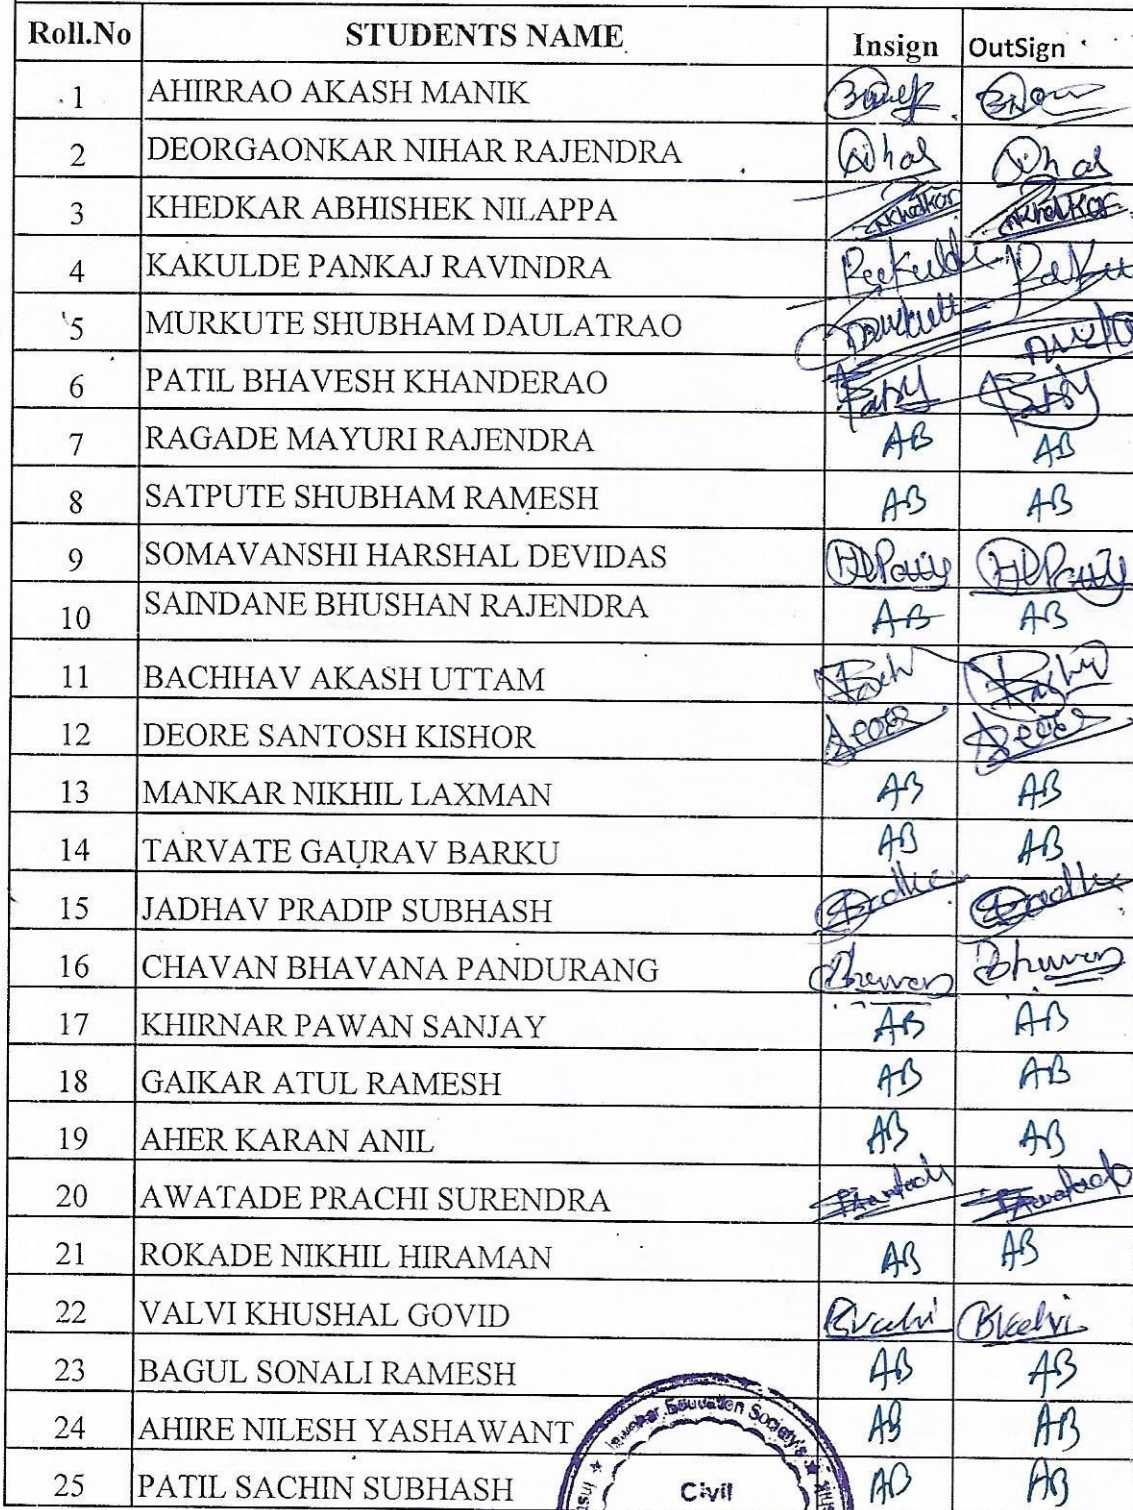 Roll.No STUDENTS NAME Insign OutSign
1 AHIRRAO AKASH MANIK
2 DEORGAONKAR NIHAR RAJENDRA
3 KHEDKAR ABHISHEK NILAPPA
4 KAKULDE PANKAJ RAVINDRA
5 MURKUTE SHUBHAM DAULATRAO
6 PATIL BHAVESH KHANDERAO
7 RAGADE MAYURI RAJENDRA AB AB
8 SATPUTE SHUBHAM RAMESH AB AB
9 SOMAVANSHI HARSHAL DEVIDAS
10 SAINDANE BHUSHAN RAJENDRA AB AB
11 BACHHAV AKASH UTTAM
12 DEORE SANTOSH KISHOR
13 MANKAR NIKHIL LAXMAN AB AB
14 TARVATE GAURAV BARKU AB AB
15 JADHAV PRADIP SUBHASH
16 CHAVAN BHAVANA PANDURANG
17 KHIRNAR PAWAN SANJAY AB AB
18 GAIKAR ATUL RAMESH AB AB
19 AHER KARAN ANIL AB AB
20 AWATADE PRACHI SURENDRA
21 ROKADE NIKHIL HIRAMAN AB AB
22 VALVI KHUSHAL GOVID
23 BAGUL SONALI RAMESH AB AB
24 AHIRE NILESH YASHAWANT AB AB
25 PATIL SACHIN SUBHASH AB AB
Education Society's
Civil